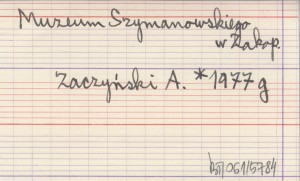 Muzeum Szymanowskiego
w Zakop.
Zaczyński A. *1977 g
061/5784